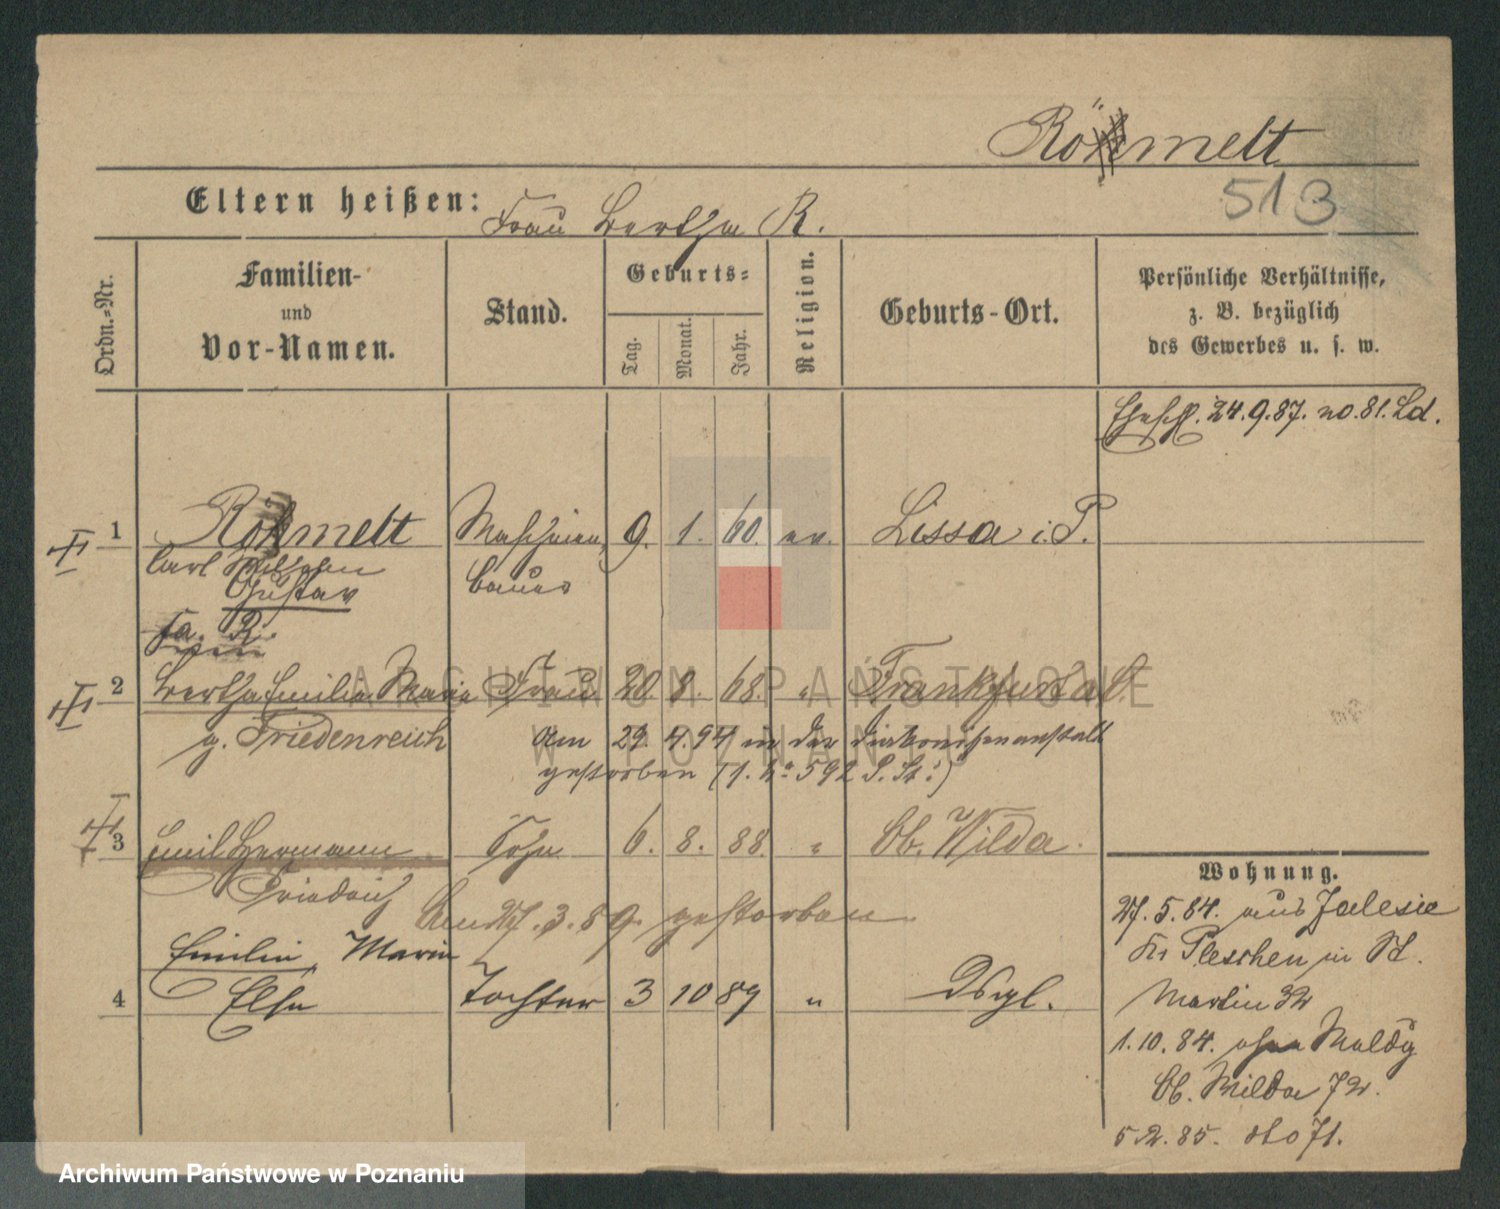 Röhmelt
513
Eltern heißen: Frau Bertha R.
Ordn.-Nr.
Familien-
und
Vor-Namen.
Stand.
Geburts-
Tag.
Monat.
Jahr.
Religion.
Geburts-Ort.
Persönliche Verhältnisse,
z. B. bezüglich
des Gewerbes u. s. w.
Eheschl. 24.9.87. no. 81. Ld.
1 Röhmelt Maschinen, 9. 1. 60. ev. Lissa i. P.
Carl Wilhelm bauer
Gustav
2 Bertha Emilie Marie Frau 20. 8. 68. " Frankfurt a O.
g. Friedenreich
Am 29 4. 94 in der Diakonissenanstalt
gestorben (1. No 592 P. St.)
3 Emil Hermann Sohn 6. 8. 88. " Ob. Wilda.
Friedrich
Am 27. 3. 89. gestorben.
Emilie, Marie
4 Elsa Tochter 3 10 89 " Dsgl.
Wohnung.
27. 5. 84. aus Jalesie
Kr Pleschen in St.
Martin 32
1. 10. 84. ohne Meldg
Ob. Wilda 72.
5 2. 85. dto 71.
ARCHIWUM PAŃSTWOWE
W POZNANIU
Archiwum Państwowe w Poznaniu